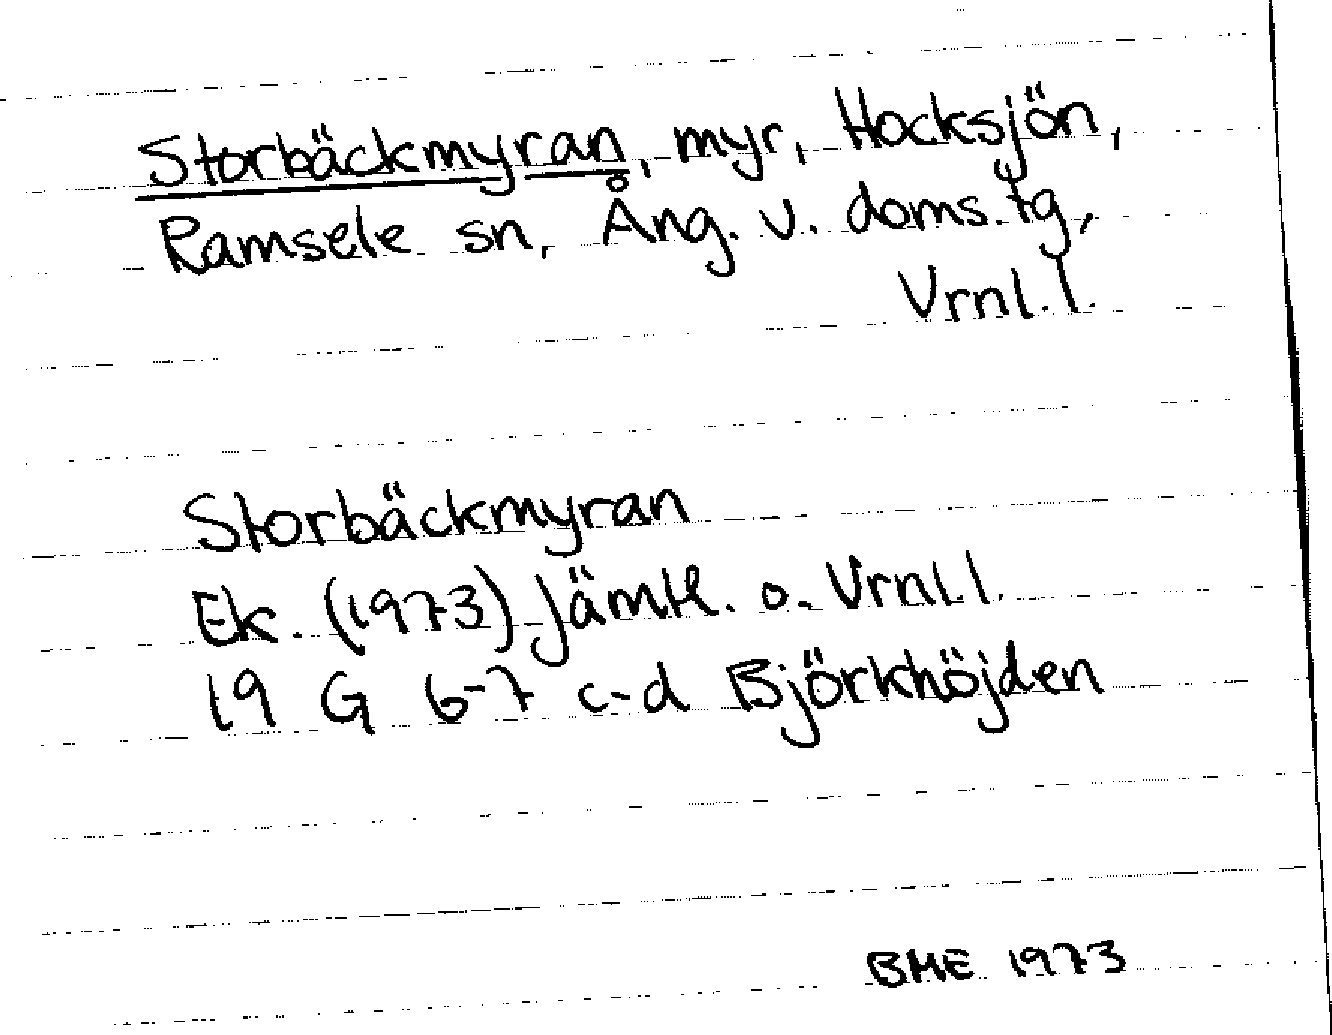 Storbäckmyran, myr, Hocksjön,
Ramsele sn, Ång. v. doms. tg,
Vrnl. l.
Storbäckmyran
Ek. (1973) Jämtl. o. Vrnl. l.
19 G 6-7 c-d Björkhöjden
BME 1973